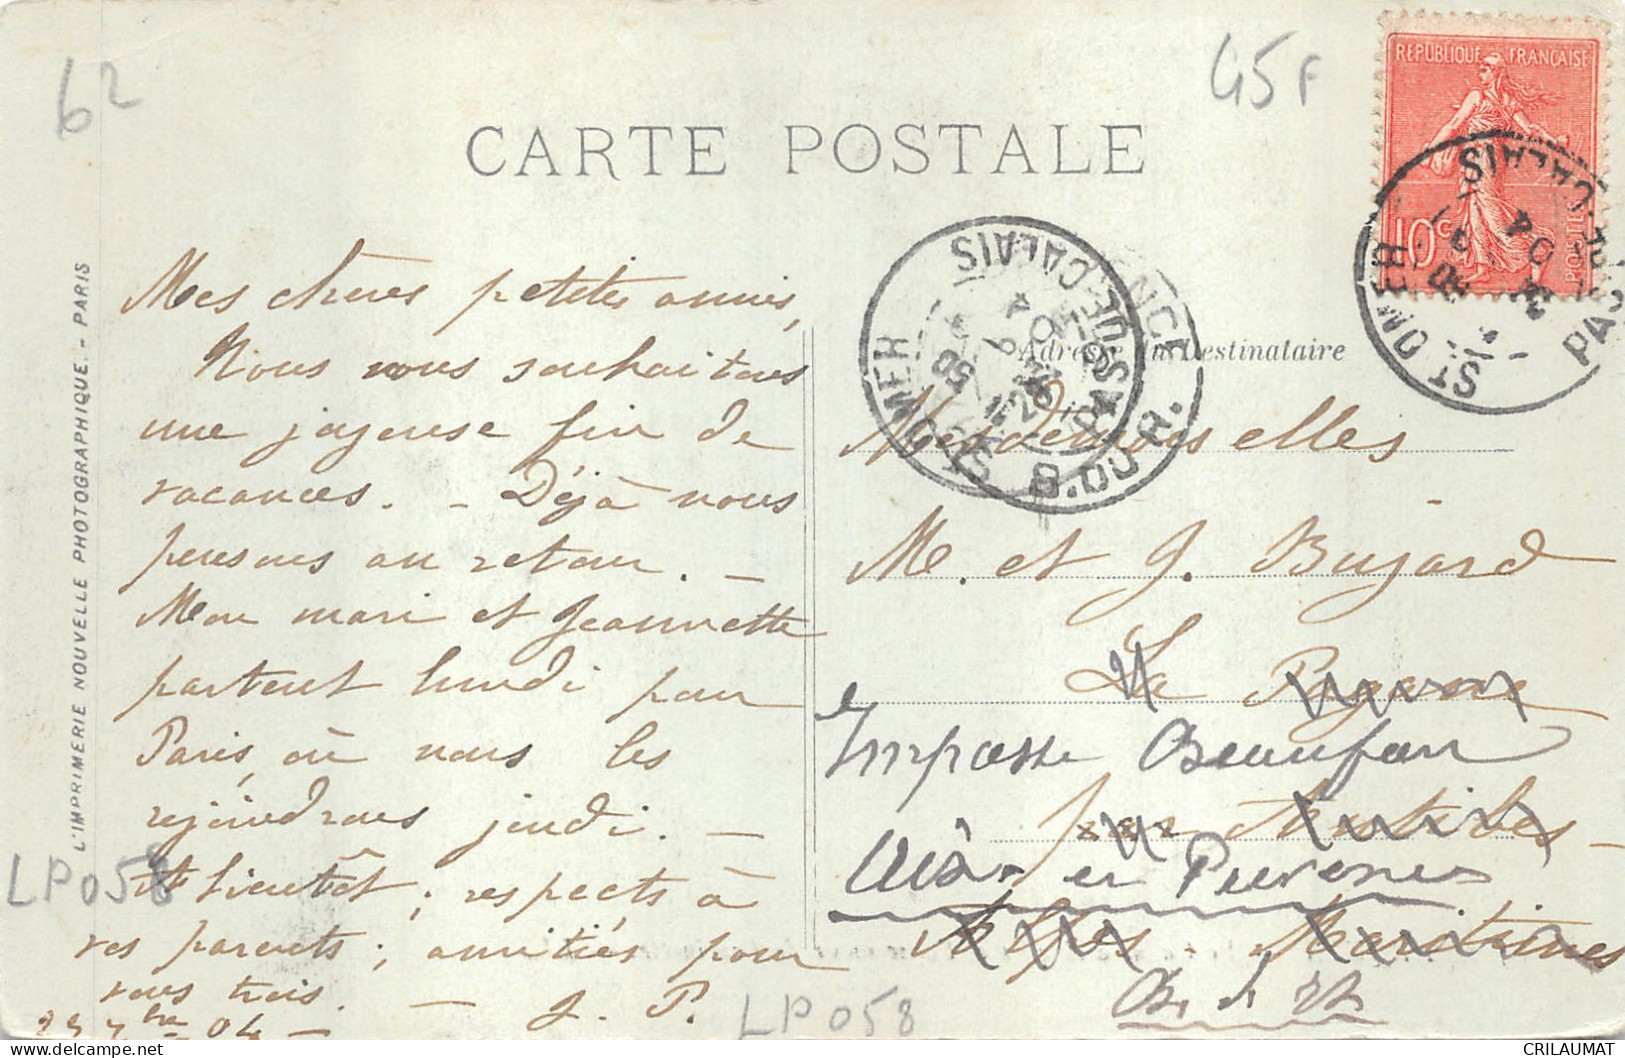 62
45F
CARTE POSTALE
RÉPUBLIQUE FRANÇAISE
10c
POSTES
ST OMER
PAS-DE-CALAIS
04
ST OMER
PAS-DE-CALAIS
B. DU R.
Adresse du Destinataire
L'IMPRIMERIE NOUVELLE PHOTOGRAPHIQUE. - PARIS
Mes chères petites amies,
Nous vous souhaitons
une joyeuse fin de
vacances. - Déjà nous
pensons au retour. -
Mon mari et Jeannette
partent lundi pour
Paris, où nous les
rejoindrons jeudi. -
A bientôt ; respects à
vos parents ; amitiés pour
vous trois. - J. P.
7bre 04 -
Mesdemoiselles
M. et J. Bujard
La
Impasse Beaufort
par Antibes -
Aix- en Provence
Alpes Maritimes
B. d. Rh
LP058
LP058
CRILAUMAT